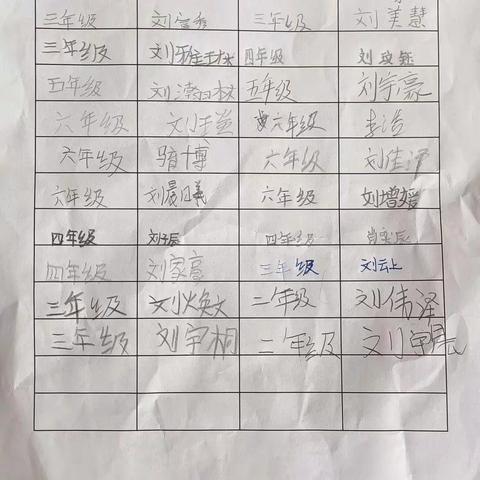 三年级 刘 三年级 刘美慧
三年级 刘雅 四年级 刘
五年级 刘 五年级 刘宇豪
六年级 刘 六年级 李浩
六年级 博 六年级 刘佳泽
六年级 刘晨曦 六年级 刘增媛
四年级 刘子辰 四年级 肖奕辰
四年级 刘家意 三年级 刘云上
三年级 刘焕文 二年级 刘伟泽
三年级 刘宇桐 二年级 刘宇辰